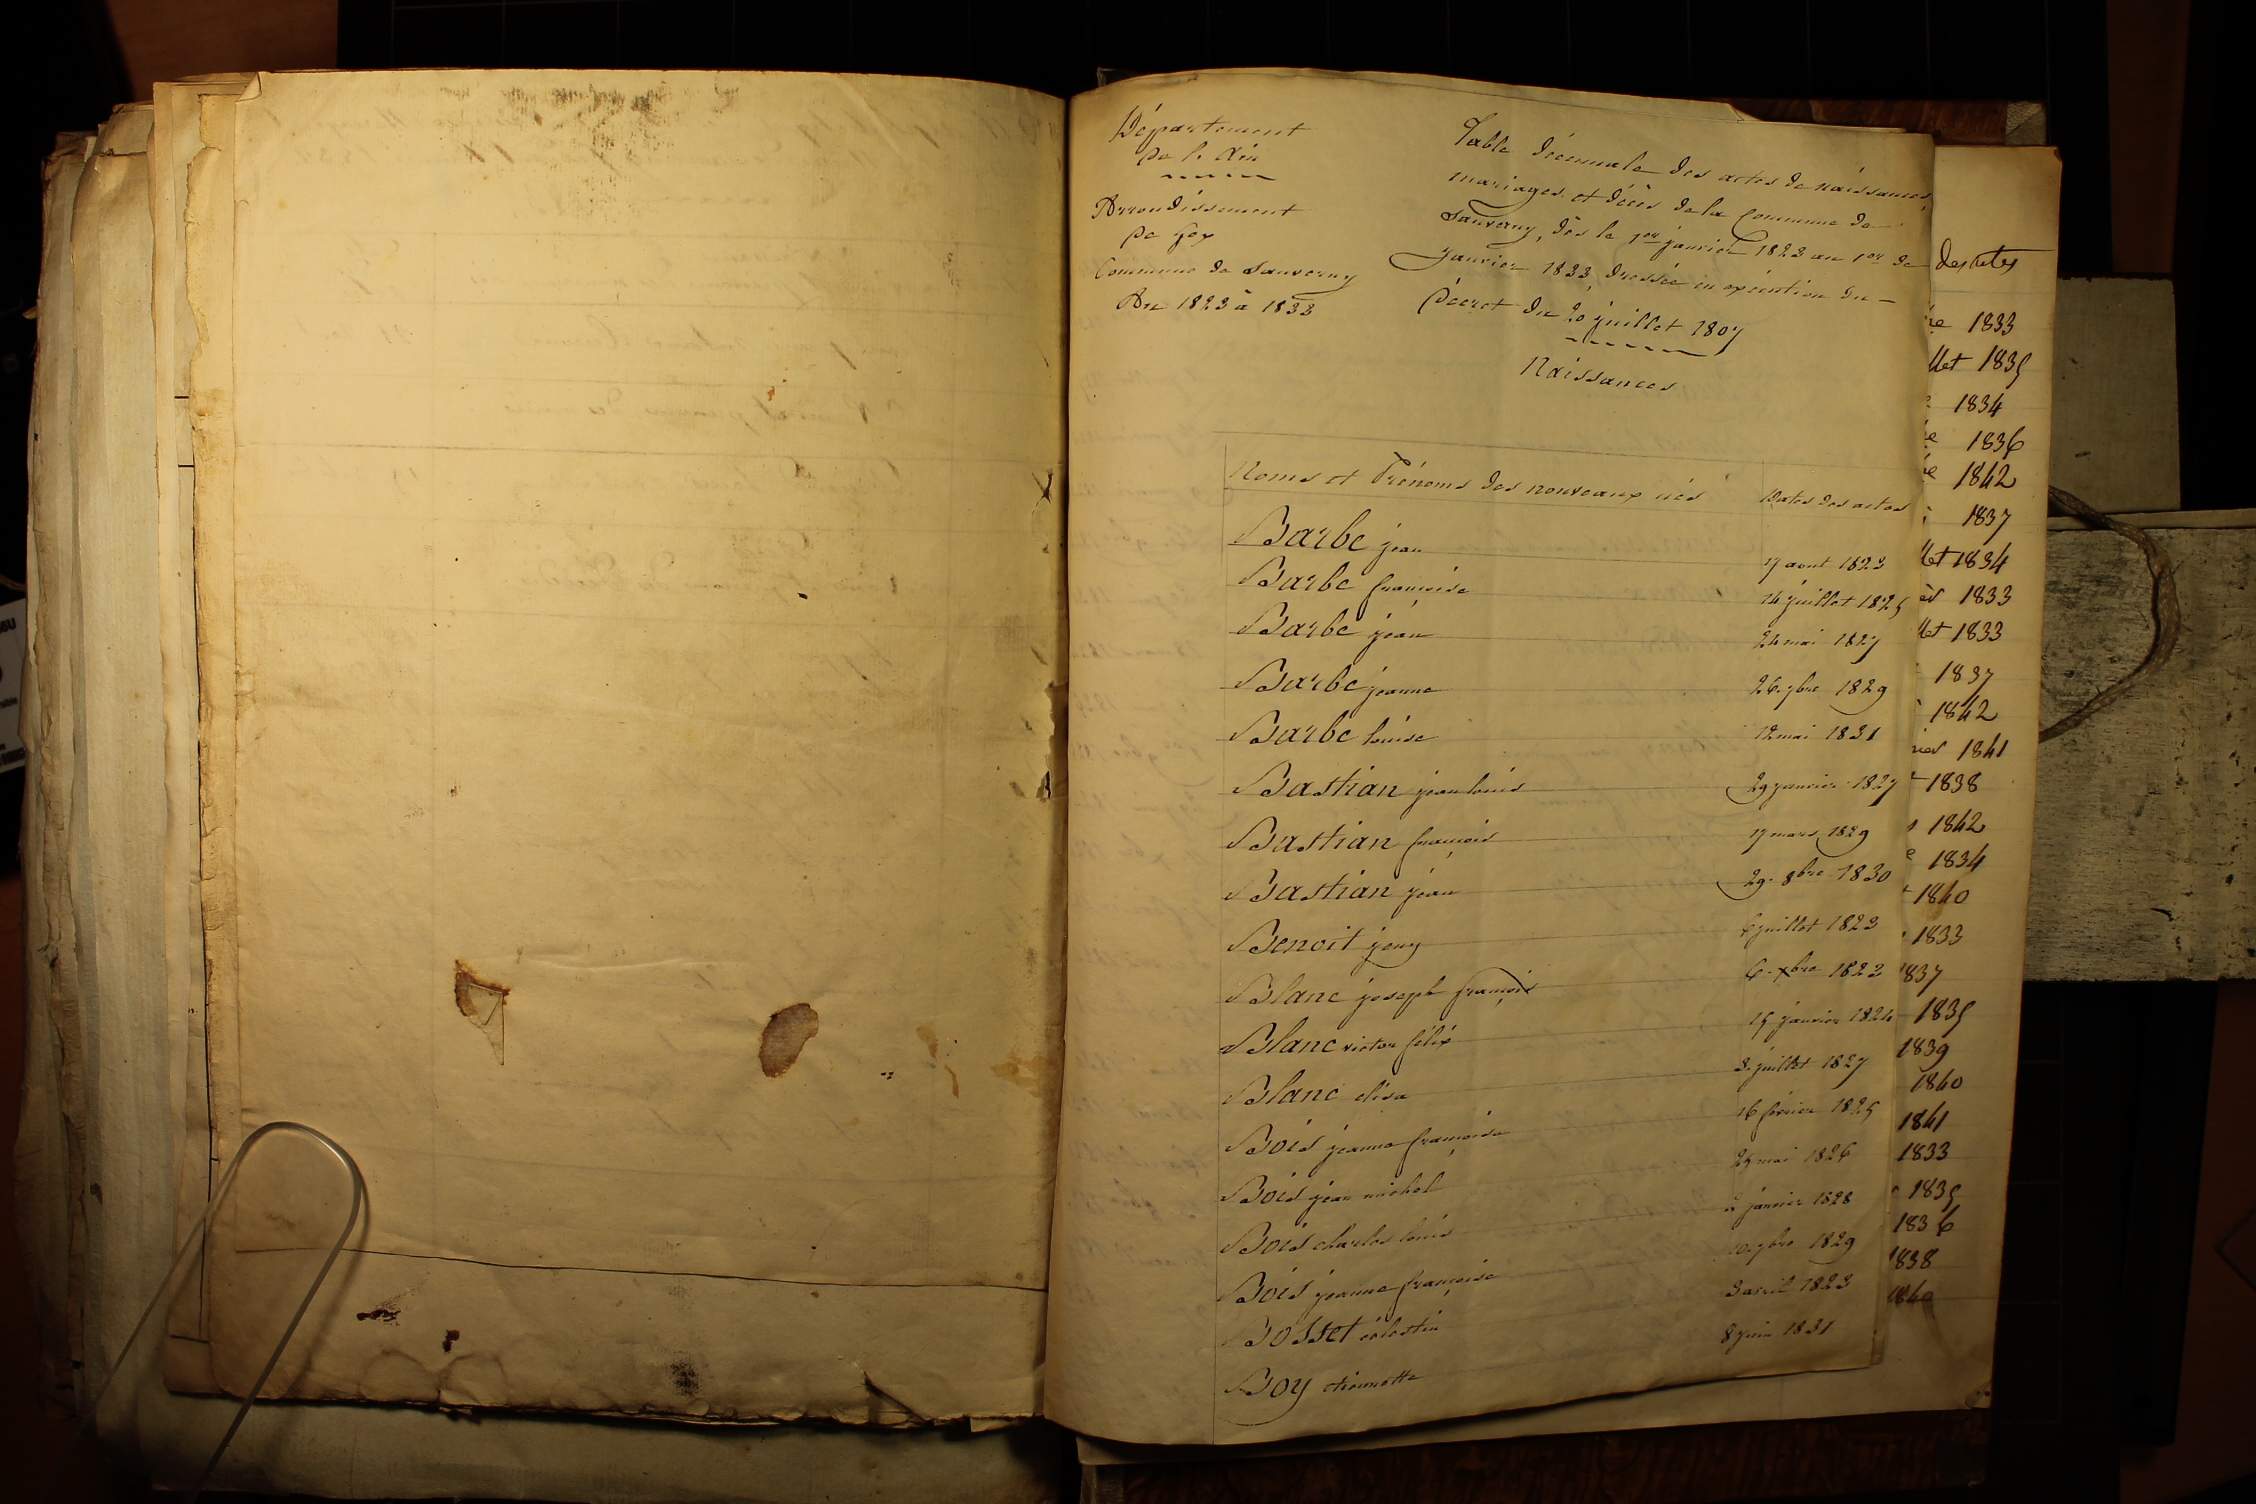 Département
de l'Ain
Arrondissement
de Gex
Commune de Sauverny
An 1823 à 1833
Table décennale des actes de naissances,
mariages et décès de la Commune de
Sauverny, dès le 1er janvier 1823 au 1er de
janvier 1833, dressée en exécution du
Décret du 20 juillet 1807
Naissances
Noms et Prénoms des nouveaux nés Dates des actes
Barbe jean 17 aout 1823
Barbe françoise 14 juillet 1825
Barbe jean 24 mai 1827
Barbe jeanne 26. 7bre 1829
Barbe louise 12 mai 1831
Bastian jean louis 29 janvier 1827
Bastian françois 17 mars 1829
Bastian jean 29. 8bre 1830
Benoit jeny 6 juillet 1823
Blanc joseph françois 6. xbre 1822
Blanc victor félix 15 janvier 1824
Blanc elisa 3. juillet 1827
Bois jeanne françoise 16 février 1825
Bois jean michel 25 mai 1826
Bois charles louis 2 janvier 1828
Bois jeanne françoise 7bre 1829
Bosset célestin 3 avril 1823
Boy etiennette 8 juin 1831
des actes
1833
1835
1834
1836
1842
1837
1834
1833
1833
1837
1842
1841
1838
1842
1834
1840
1833
1837
1835
1839
1840
1841
1833
1835
1836
1838
1840